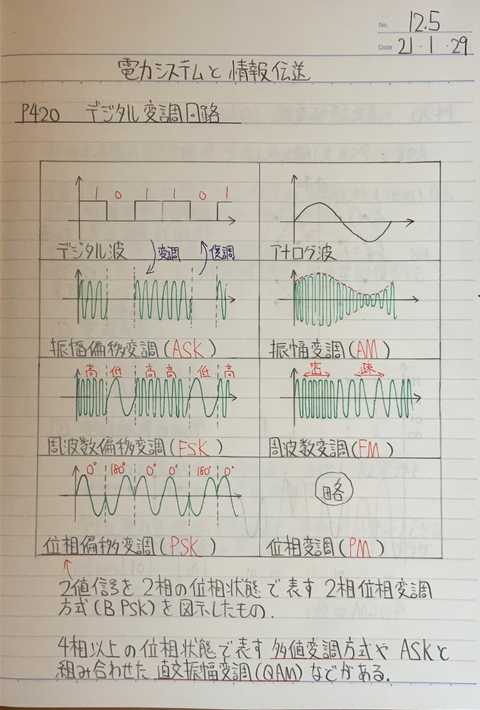 No. 12.5
Date 21・1・29
電力システムと情報伝送
P420 デジタル変調回路
1 0 1 1 0 1
デジタル波 変調 復調 アナログ波
振幅偏移変調(ASK) 振幅変調(AM)
高 低 高 高 低 高 密 疎
周波数偏移変調(FSK) 周波数変調(FM)
0° 180° 0° 0° 180° 0° 略
位相偏移変調(PSK) 位相変調(PM)
2値信号を2相の位相状態で表す2相位相変調
方式(BPSK)を図示したもの.
4相以上の位相状態で表す多値変調方式やASKと
組み合わせた直交振幅変調(QAM)などがある.